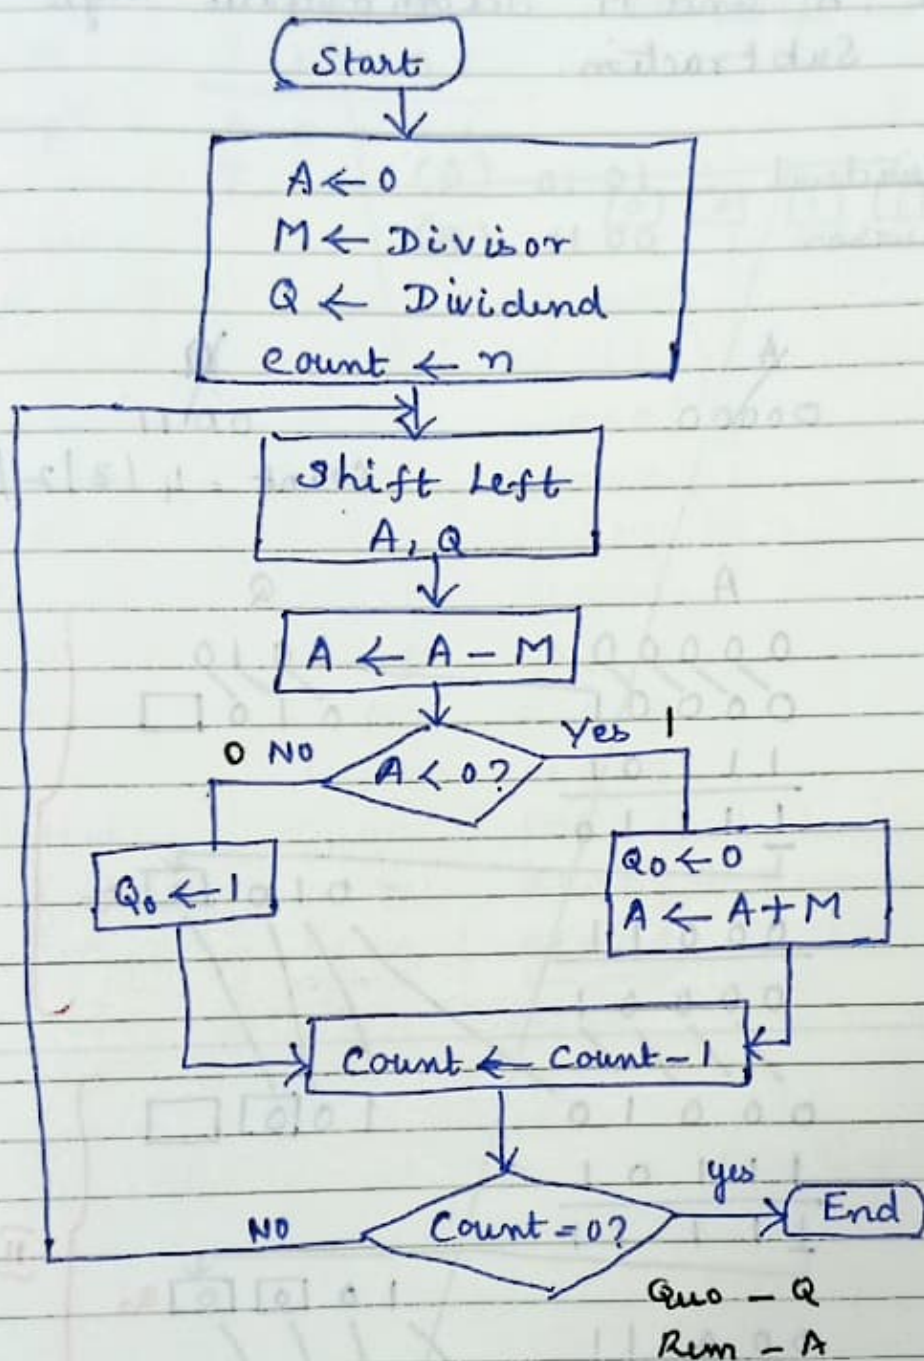 Subtraction
Start
A ← 0
M ← Divisor
Q ← Dividend
Count ← n
Shift Left
A, Q
A ← A - M
0 NO
A < 0?
Yes 1
Q0 ← 1
Q0 ← 0
A ← A + M
Count ← Count - 1
NO
Count = 0?
yes
End
Quo - Q
Rem - A